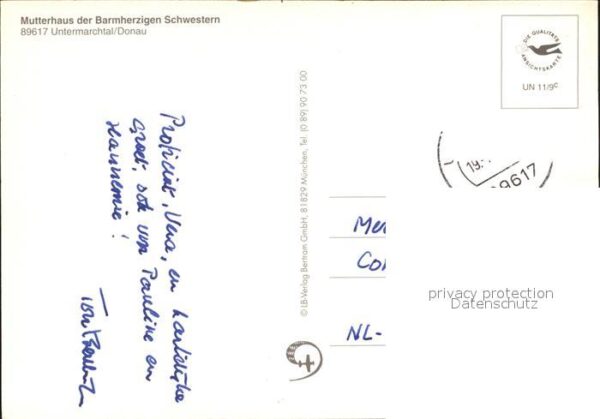 Mutterhaus der Barmherzigen Schwestern
89617 Untermarchtal/Donau
DIE QUALITÄTS
ANSICHTSKARTE
UN 11/9c
© LB-Verlag Bertram GmbH, 81829 München, Tel. (0 89) 90 73 00
Proficiat, Vera, en hartelijke
groet, ook van Pauline en
Hannemie!
19.
89617
Me
Co
NL-
privacy protection
Datenschutz